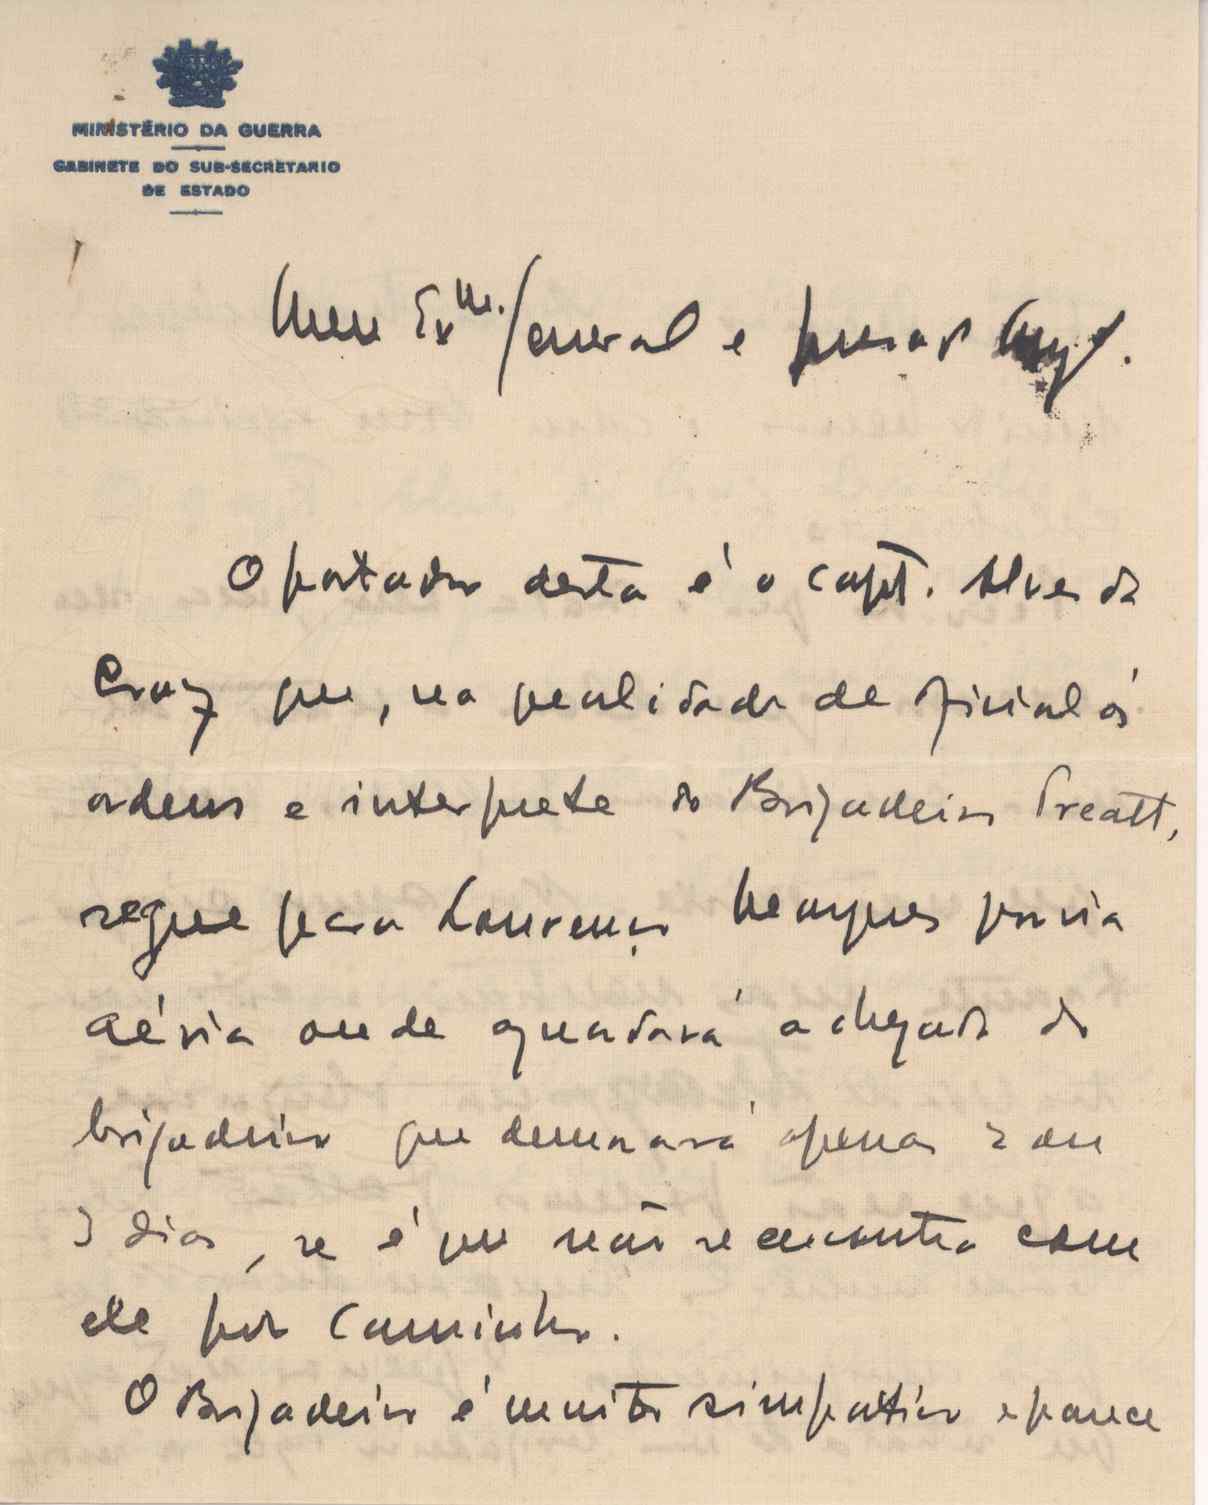 MINISTÉRIO DA GUERRA
GABINETE DO SUB-SECRETARIO
DE ESTADO
Meu Exmo. General e prezado Amigo.
O portador desta é o capt. Alves da
Cruz que, na qualidade de oficial ás
ordens e interprete do Brigadeiro Preatt,
segue para Lourenço Marques por via
aéria onde aguardará a chegada do
brigadeiro que demorará apenas 2 ou
3 dias, se é que não se encontra com
ele por caminho.
O Brigadeiro é muito simpatico e parece